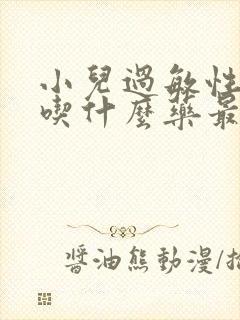 小兒過敏性
喫什麼藥最
醬油熊動漫/插